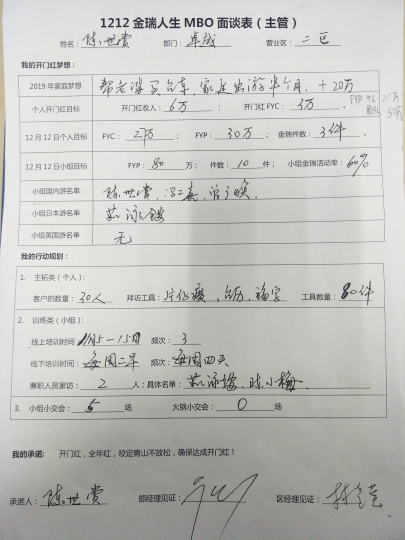 1212 金瑞人生 MBO 面谈表（主管）
姓名：陈世赏 部门：卓越 营业区：二区
我的开门红梦想：
2019 年家庭梦想 帮老婆买台车，家庭出游半个月，+20万
个人开门红目标 开门红收入：6万 ； 开门红 FYC：3万 ．
12 月 12 日个人目标 FYC：2万 ； FYP：30万 ； 金瑞件数：3件 ．
12 月 12 日小组目标 FYP：80 万； 件数：10 件； 小组金瑞活动率：60%
小组国内游名单 陈世赏，
小组日本游名单
小组英国游名单 无
我的行动规划：
1. 主拓类（个人）：
客户的数量：30人 拜访工具： 台历，福字 工具数量：80件
2. 训练类（小组）：
线上培训时间： 频次：3
线下培训时间：每周二早 频次：每周四天
兼职人员家访：2 人；具体名单： 陈小梅．
3. 小组小交会：5 场 火锅小交会：0 场
我的承诺： 开门红，全年红，咬定青山不放松，确保达成开门红！
承诺人：陈世赏 部经理见证： 区经理见证：